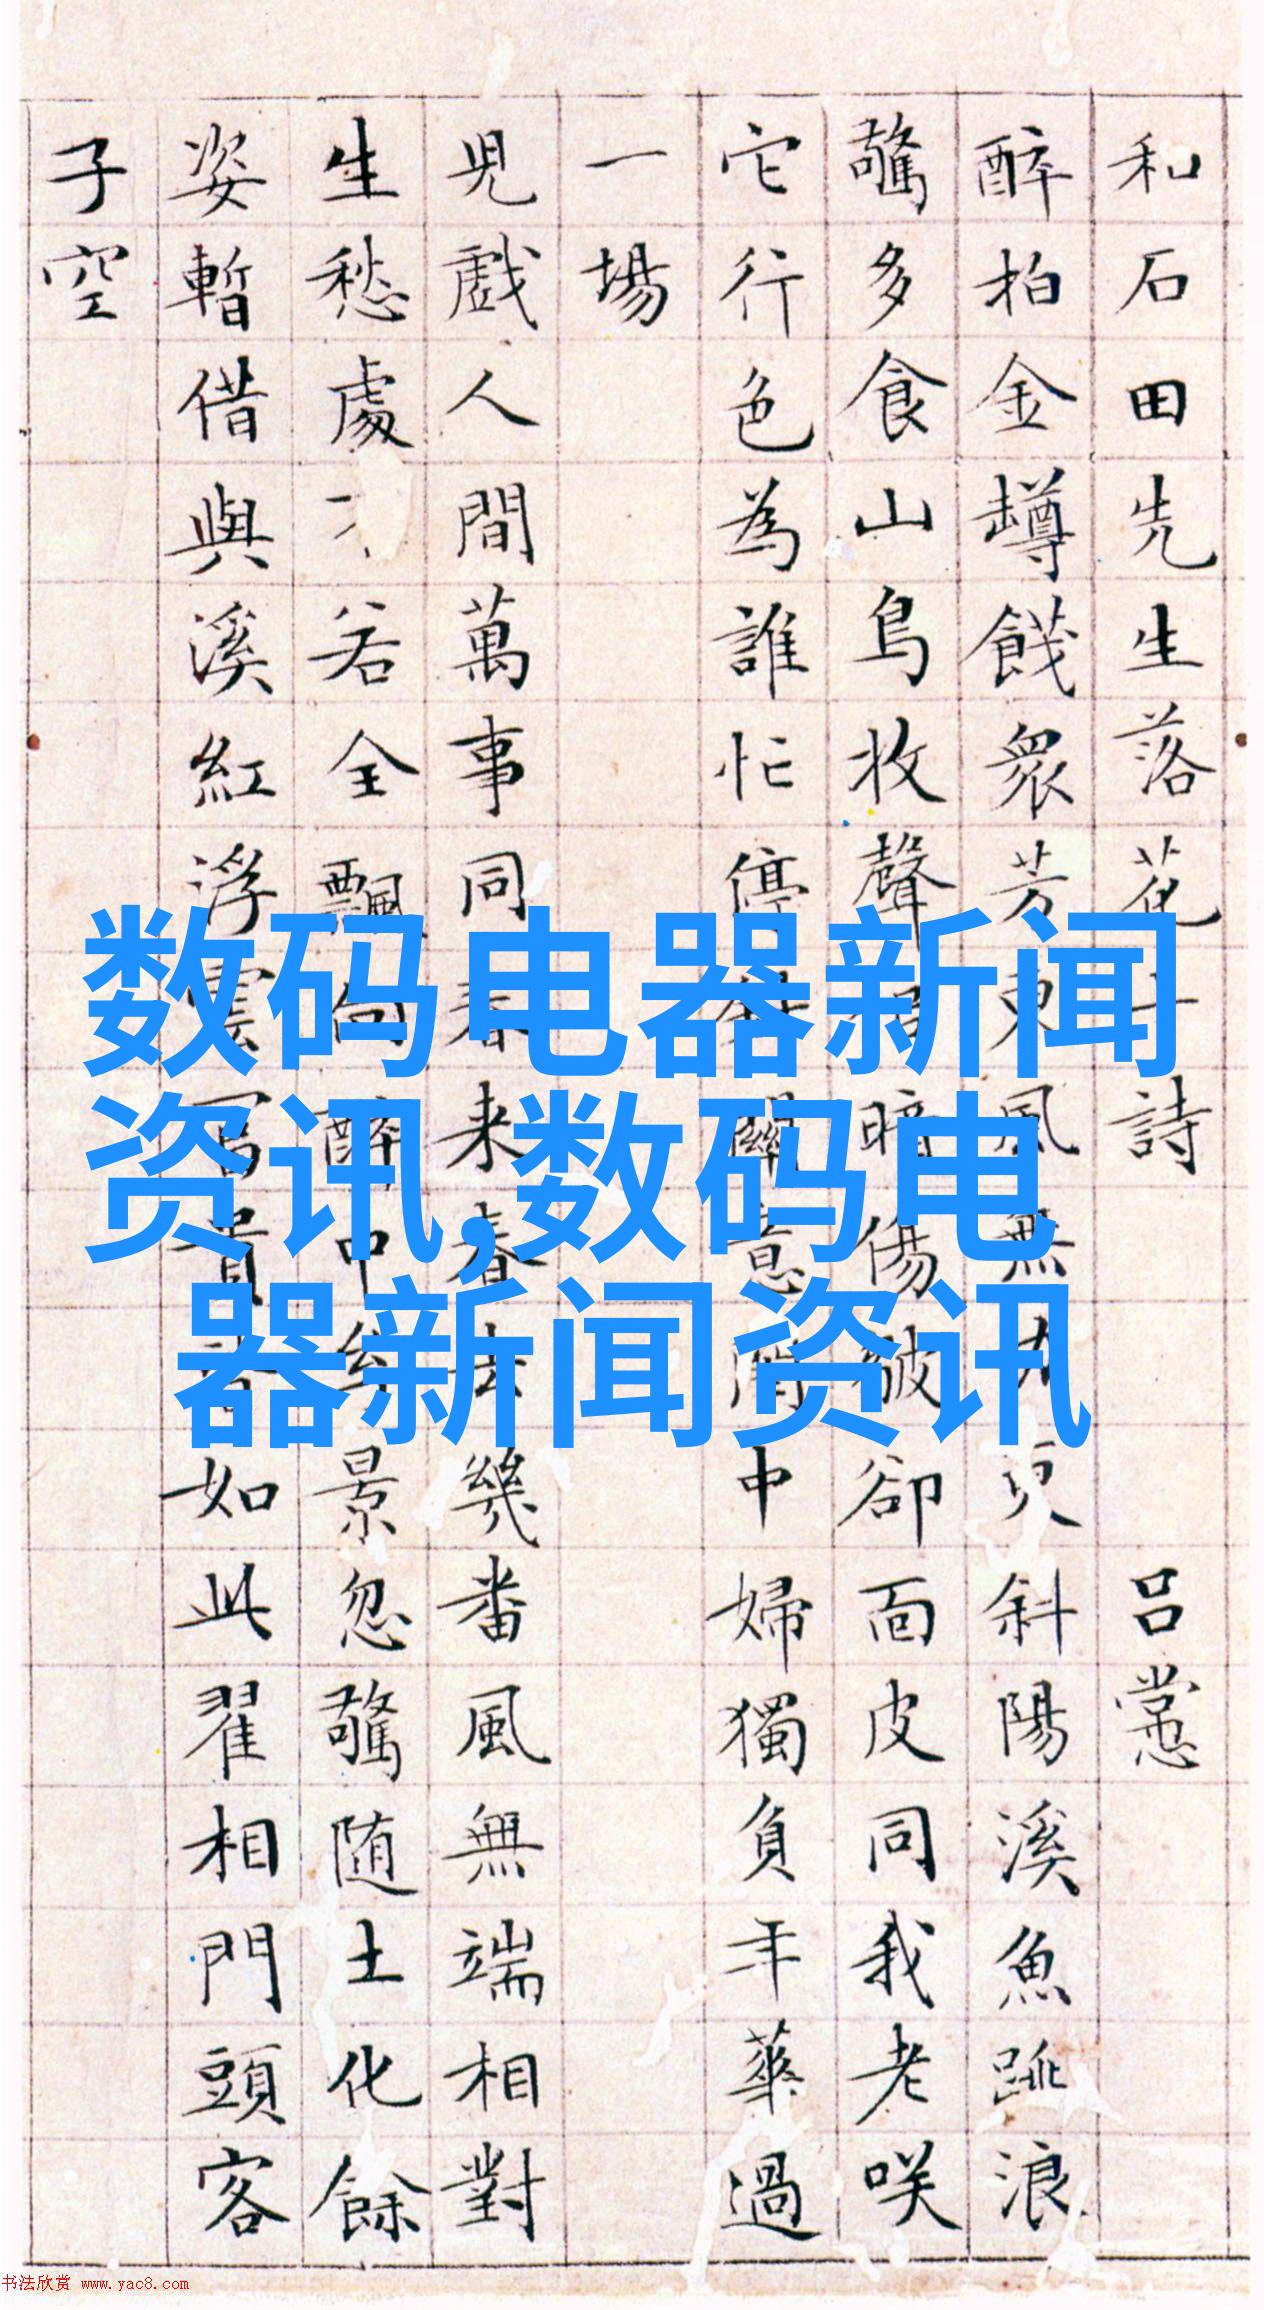 和石田先生落花十詩 呂㦂
醉拍金罇餞衆芳東風無 斜陽溪魚跳浪
驚多食山鳥收聲 暗傷 卻面皮同我老咲
它行色為誰忙停 關意 中婦獨負年華過
一場
兒戲人間萬事同春来春去幾番風無端相對
生愁處 若全飄向醉中 景忽驚随土化餘
姿暫借與溪紅浮雲 貴 如此翟相門頭客
子空
数码电器新闻
资讯,数码电
器新闻资讯
书法欣赏 www.yac8.com